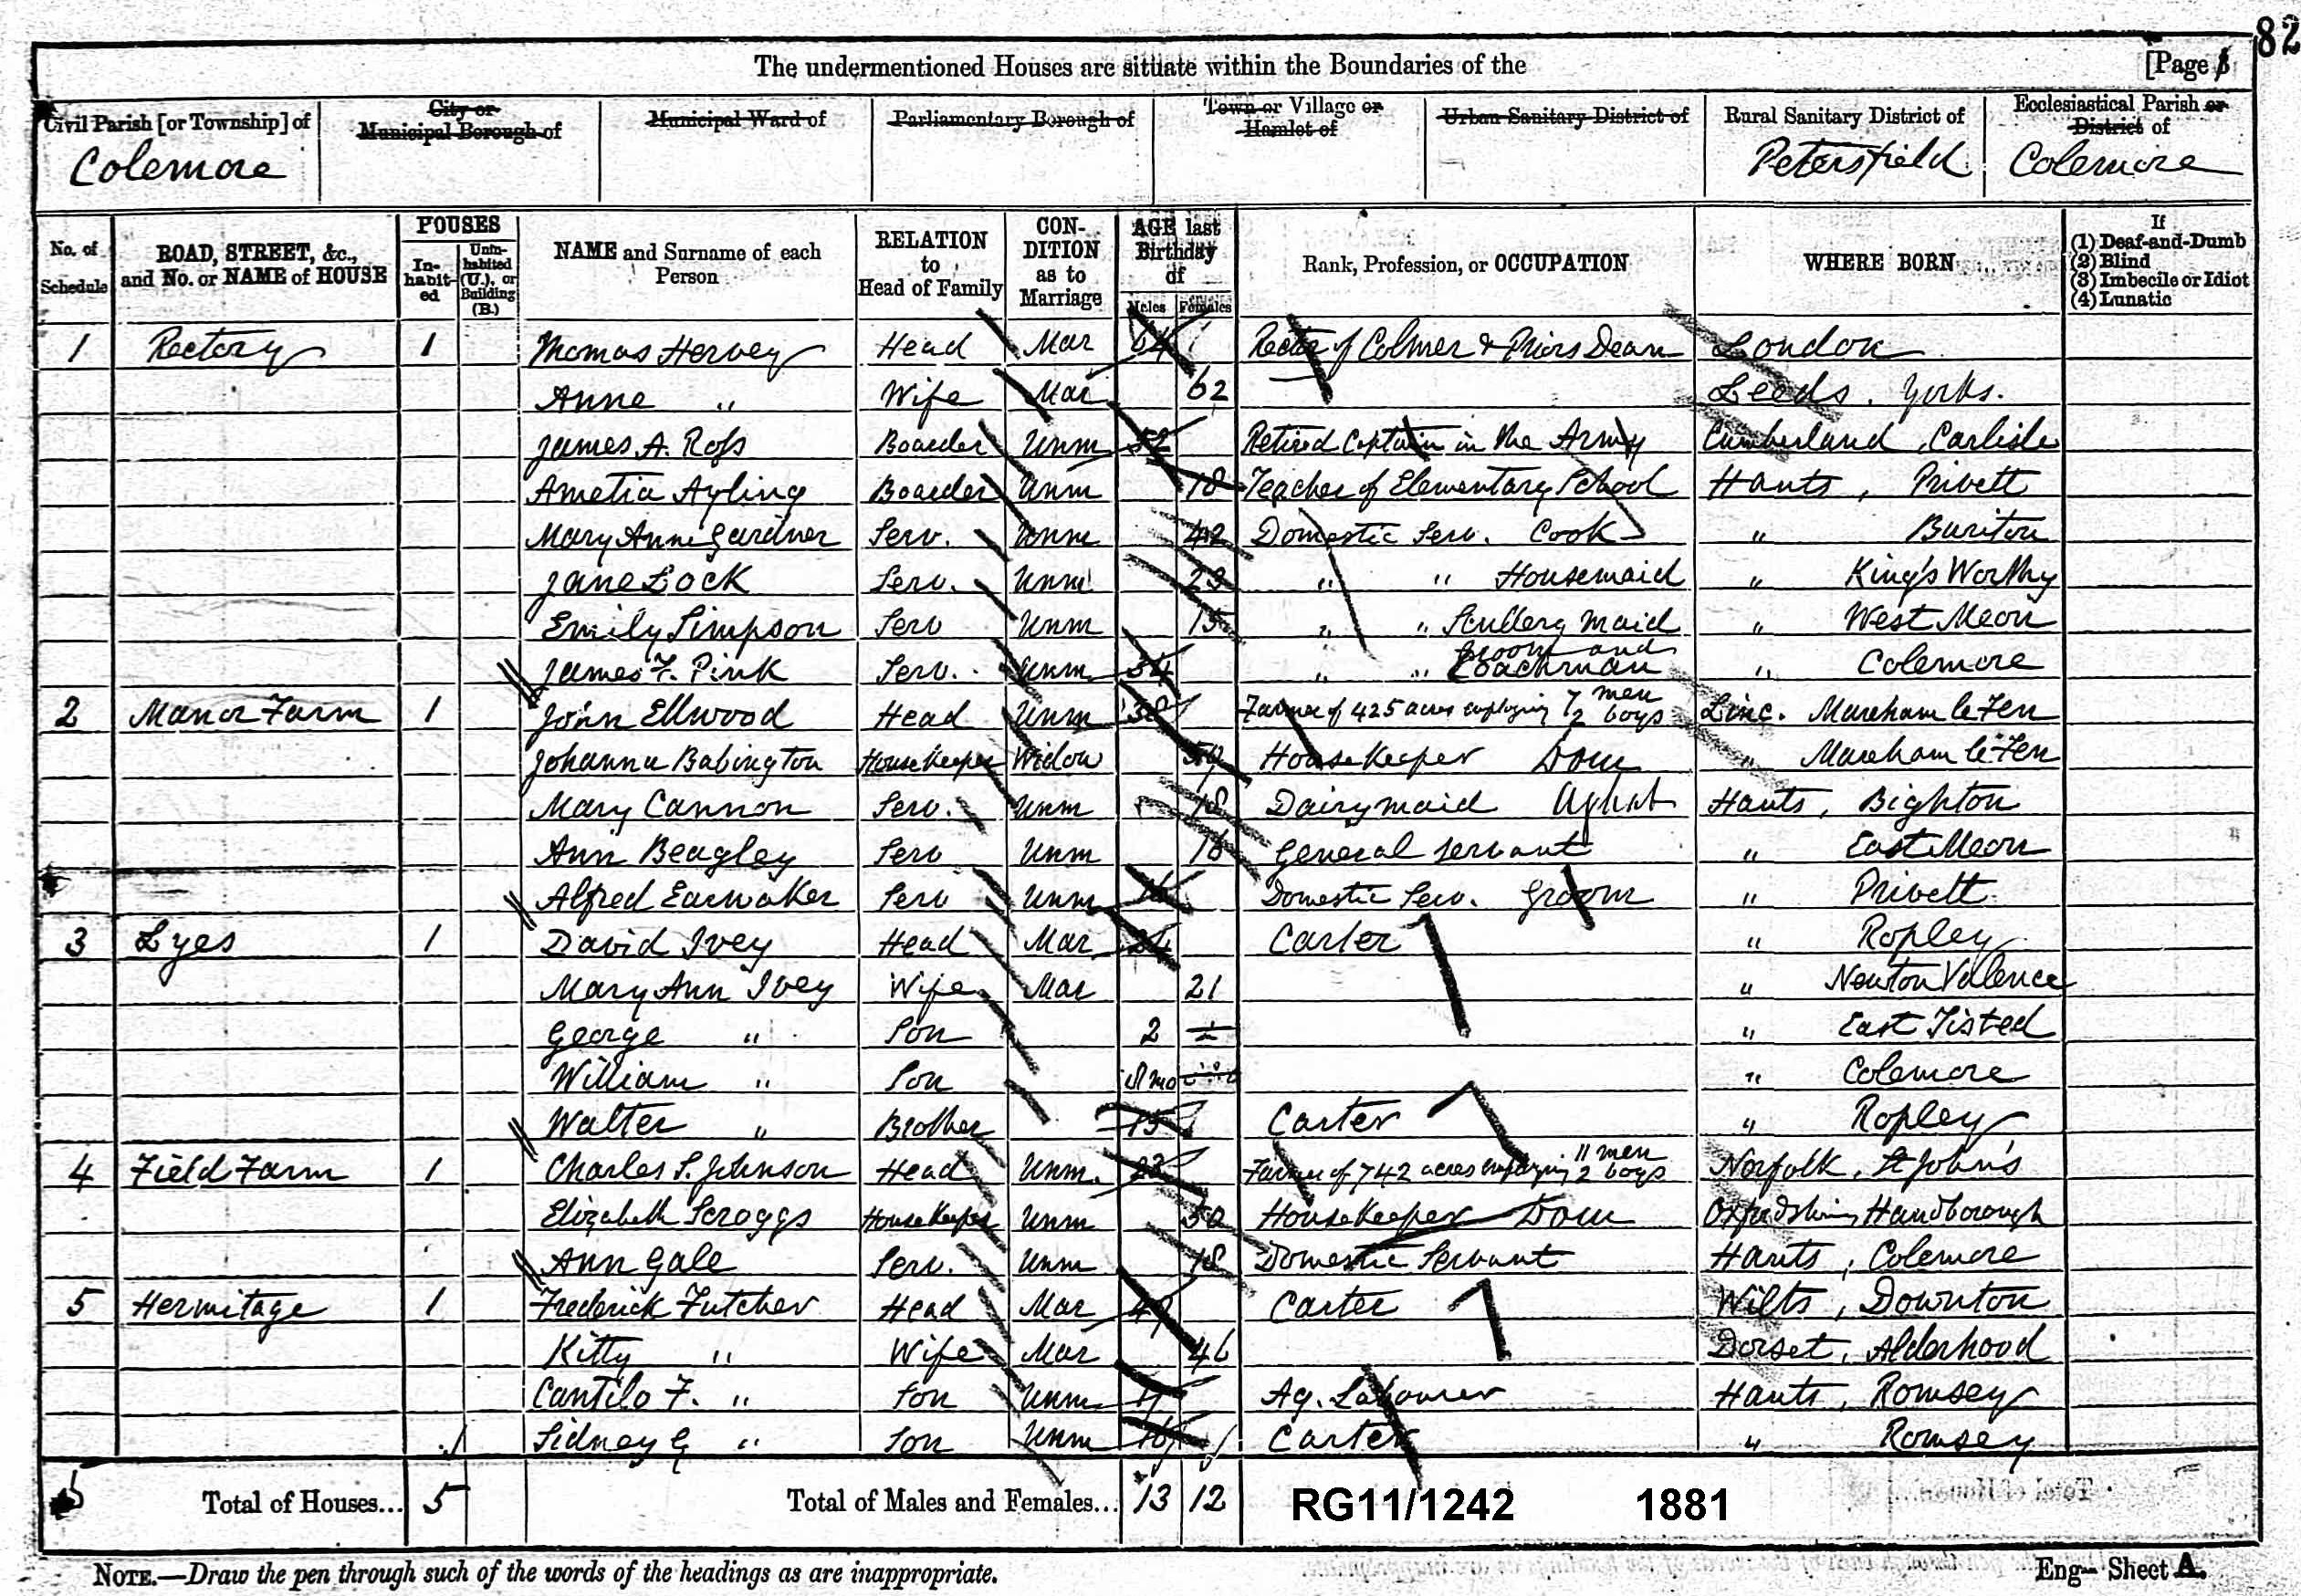 82
The undermentioned Houses are situate within the Boundaries of the [Page 1
Civil Parish [or Township] of City or Municipal Borough of Municipal Ward of Parliamentary Borough of Town or Village or Hamlet of Urban Sanitary District of Rural Sanitary District of Ecclesiastical Parish or District of
Colemore Petersfield Colemore
No. of Schedule ROAD, STREET, &c., and No. or NAME of HOUSE HOUSES In-habit-ed Unin-habited (U.), or Building (B.) NAME and Surname of each Person RELATION to Head of Family CON-DITION as to Marriage AGE last Birthday of Males Females Rank, Profession, or OCCUPATION WHERE BORN If (1) Deaf-and-Dumb (2) Blind (3) Imbecile or Idiot (4) Lunatic
1 Rectory 1 Thomas Hervey Head Mar 64 Rector of Colmer & Priors Dean London
Anne " Wife Mar 62 Leeds. Yorks.
James A. Ross Boarder Unm 52 Retired Captain in the Army Cumberland, Carlisle
Amelia Ayling Boarder Unm 18 Teacher of Elementary School Hants, Privett
Mary Anne Gardner Serv. Unm 42 Domestic Serv. Cook " Buriton
Jane Lock Serv. Unm 23 " " Housemaid " King's Worthy
Emily Simpson Serv Unm 15 " " Scullery maid " West Meon
James F. Pink Serv. Unm 34 " " Groom and Coachman " Colemore
2 Manor Farm 1 John Ellwood Head Unm Farmer of 425 acres employing 7 men 2 boys Linc. Mareham le Fen
Johanna Babington Housekeeper Widow Housekeeper Dom " Mareham le Fen
Mary Cannon Serv. Unm 18 Dairymaid Hants, Bighton
Ann Beagley Serv Unm General servant " East Meon
Alfred Earwaker Serv Unm 16 Domestic Serv. Groom " Privett
3 Lyes 1 David Ivey Head Mar 24 Carter " Ropley
Mary Ann Ivey Wife Mar 21 " Newton Valence
George " Son 2 " East Tisted
William " Son 8 mo " Colemore
Walter " Brother 15 Carter " Ropley
4 Field Farm 1 Charles S. Johnson Head Unm. 23 Farmer of 742 acres employing 11 men 2 boys Norfolk, St John's
Elizabeth Scroggs Housekeeper Unm 50 Housekeeper Dom Oxfordshire, Handborough
Ann Gale Serv. Unm 18 Domestic Servant Hants, Colemore
5 Hermitage 1 Frederick Futcher Head Mar 49 Carter Wilts, Downton
Kitty " Wife Mar 46 Dorset, Alderhood
Cantilo F. " Son Unm Ag. Labourer Hants, Romsey
Sidney G " Son Unm 16 Carter " Romsey
5 Total of Houses... 5 Total of Males and Females... 13 12 RG11/1242 1881
NOTE.—Draw the pen through such of the words of the headings as are inappropriate. Eng— Sheet A.